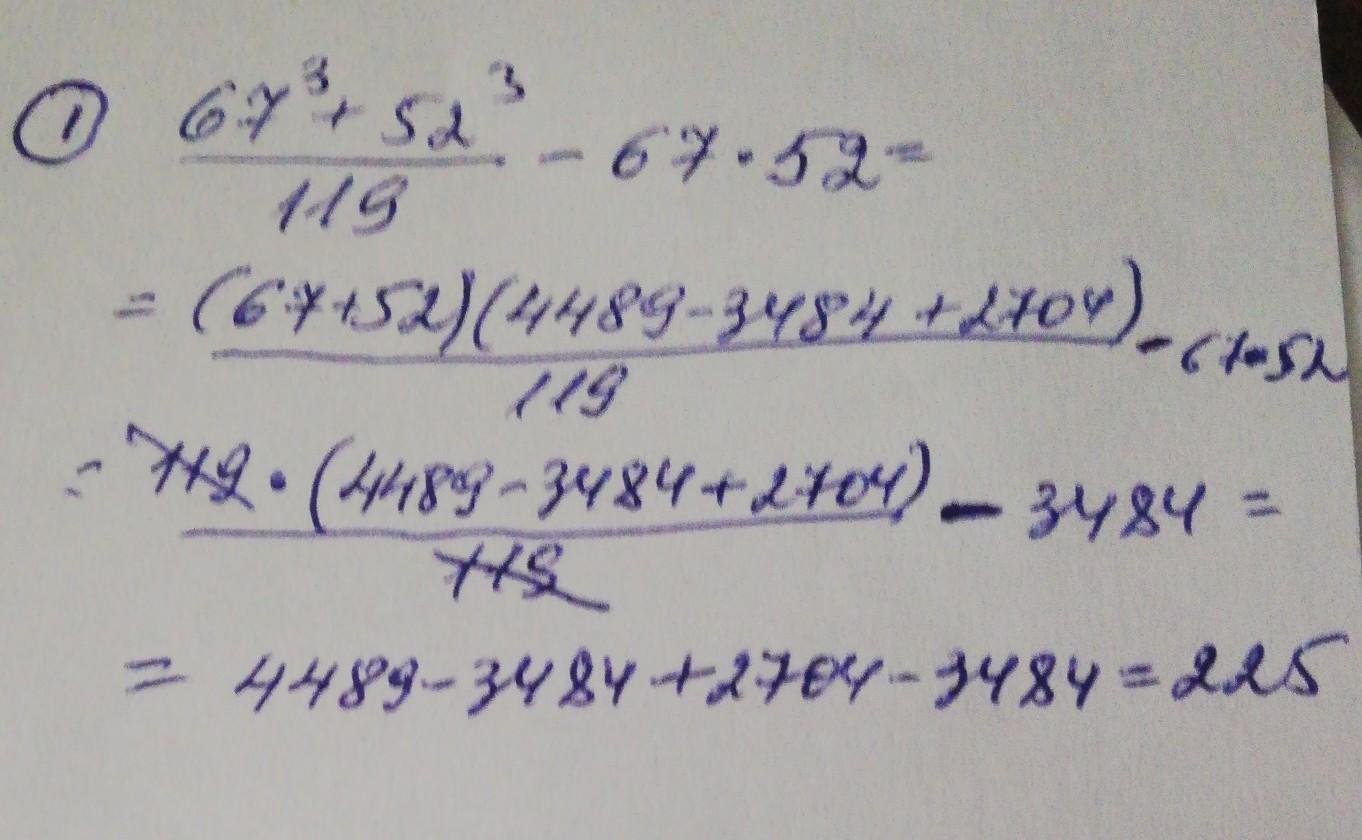 ① (67³ + 52³)/119 - 67 · 52 =
= ((67+52)(4489-3484+2704))/119 - 67·52
= (119 · (4489-3484+2704))/119 - 3484 =
= 4489-3484+2704-3484=225